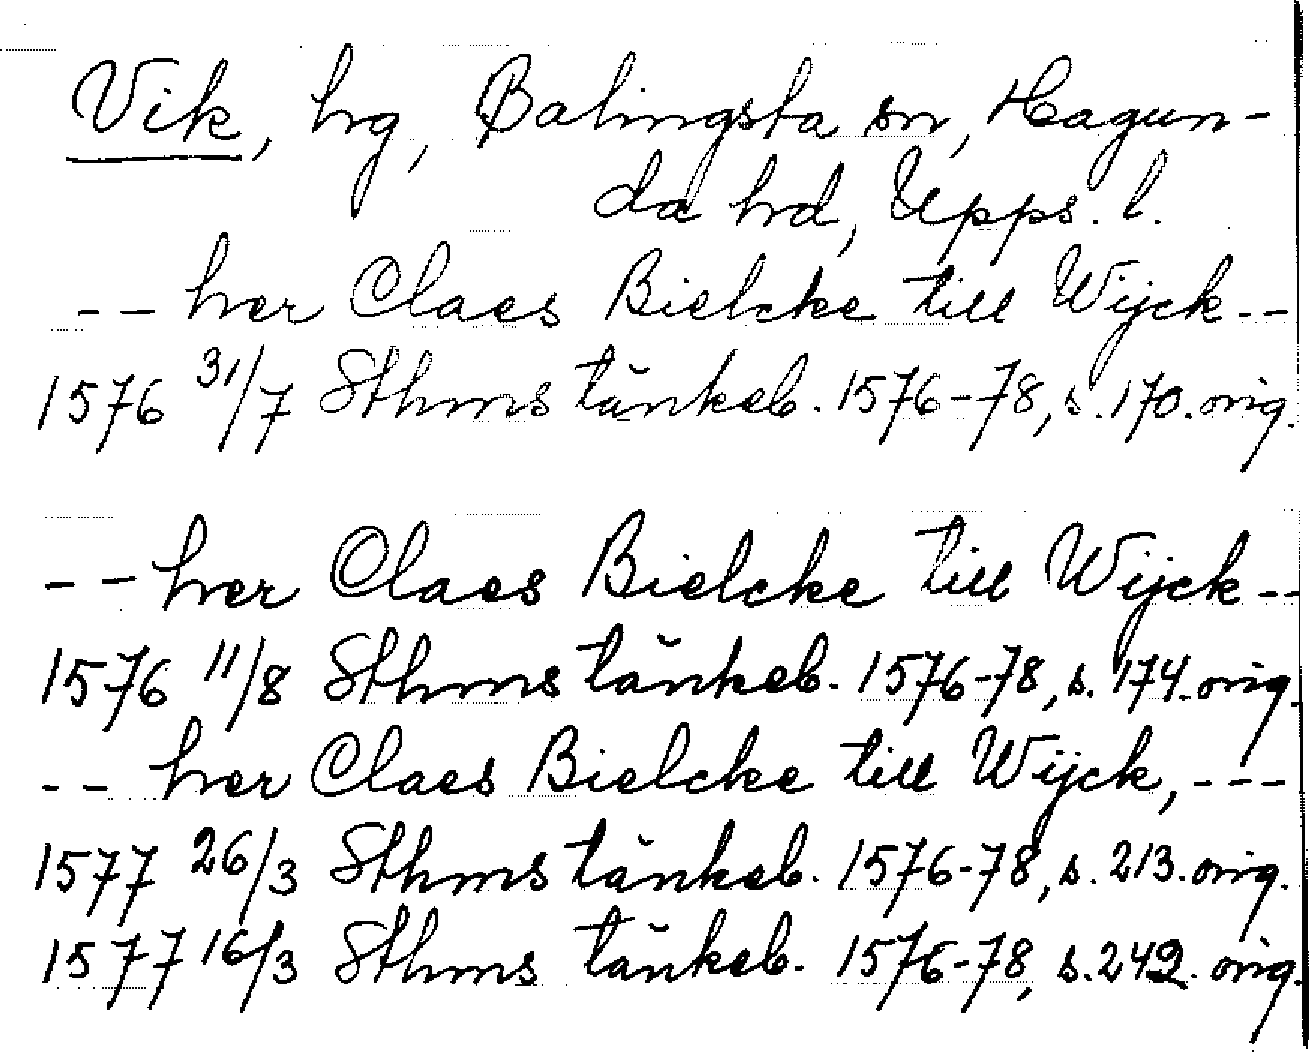 Vik, hrg, Balingsta sn, Hagun-
da hrd, Upps. l.
-- her Claes Bielcke till Wijck --
1576 31/7 Sthms tänkeb. 1576-78, s. 170. orig.
-- her Claes Bielcke till Wijck --
1576 11/8 Sthms tänkeb. 1576-78, s. 174. orig.
-- her Claes Bielcke till Wijck, ---
1577 26/3 Sthms tänkeb. 1576-78, s. 213. orig.
1577 16/3 Sthms tänkeb. 1576-78, s. 242. orig.